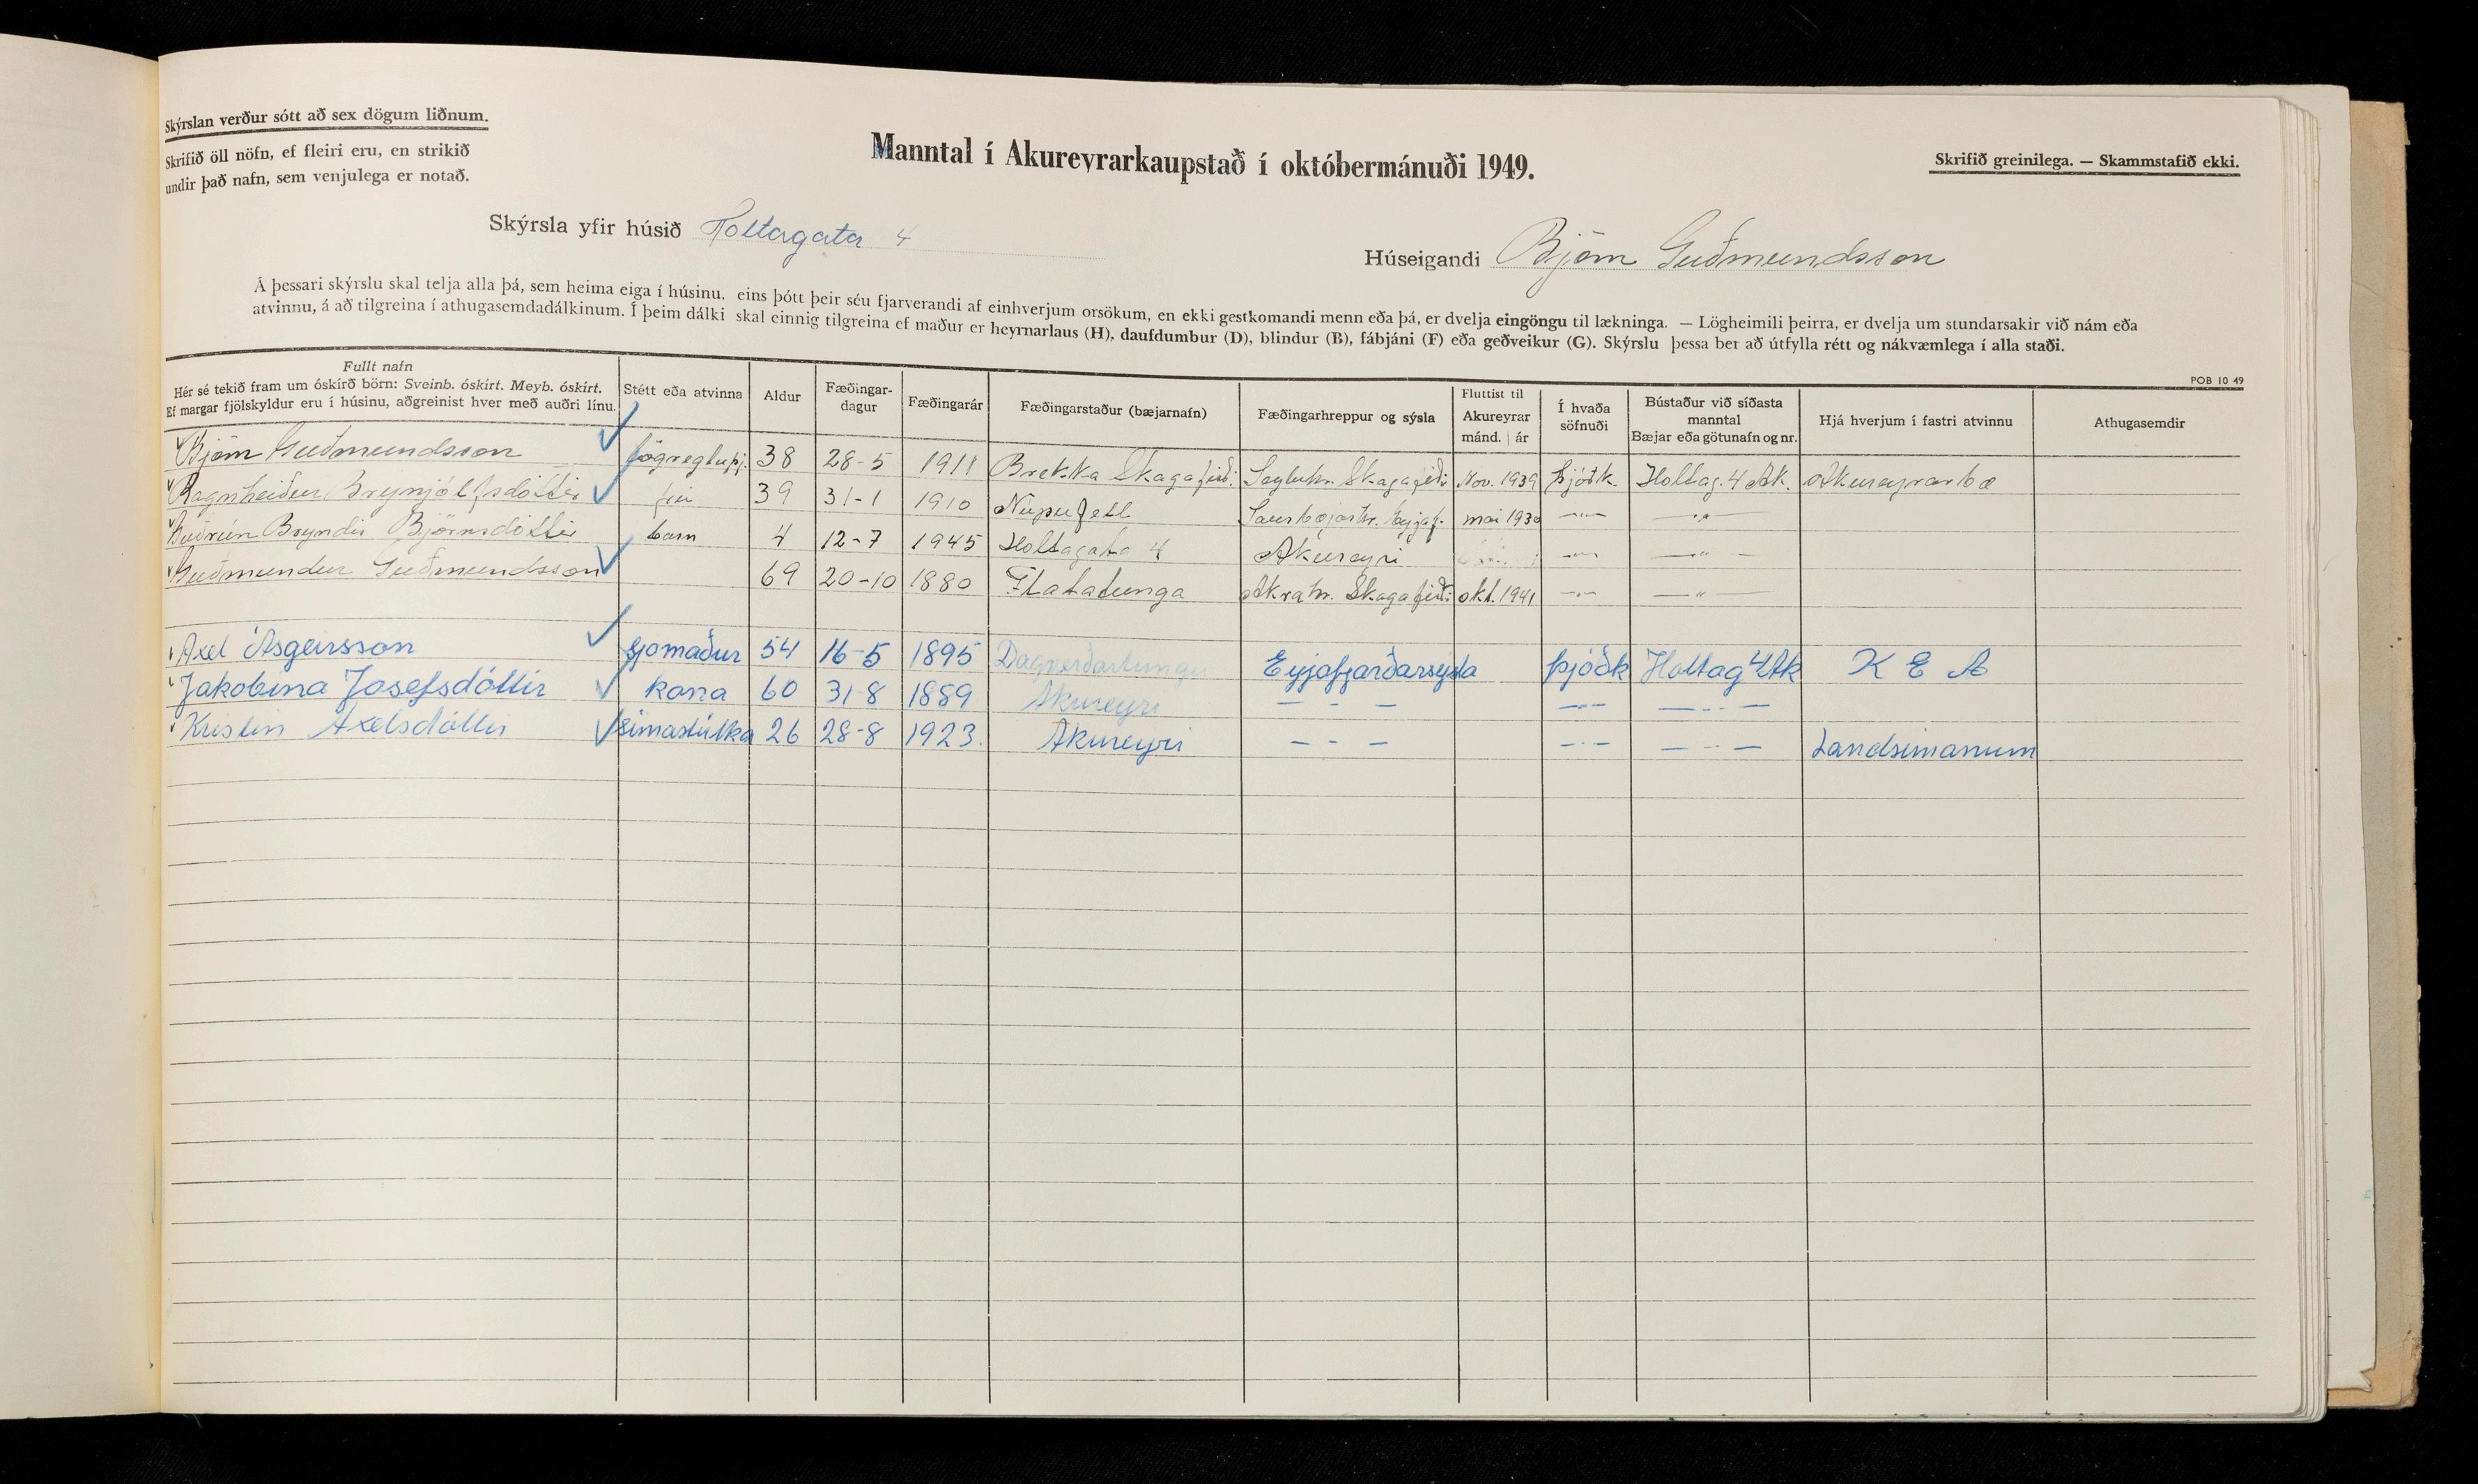 Skýrslan verður sótt að sex dögum liðnum.
Skrifið öll nöfn, ef fleiri eru, en strikið
undir það nafn, sem venjulega er notað.
Manntal í Akureyrarkaupstað í októbermánuði 1949.
Skrifið greinilega. — Skammstafið ekki.
Skýrsla yfir húsið Holtagata 4
Húseigandi Björn Guðmundsson
Á þessari skýrslu skal telja alla þá, sem heima eiga í húsinu, eins þótt þeir séu fjarverandi af einhverjum orsökum, en ekki gestkomandi menn eða þá, er dvelja eingöngu til lækninga. — Lögheimili þeirra, er dvelja um stundarsakir við nám eða
atvinnu, á að tilgreina í athugasemdadálkinum. Í þeim dálki skal einnig tilgreina ef maður er heyrnarlaus (H), daufdumbur (D), blindur (B), fábjáni (F) eða geðveikur (G). Skýrslu þessa ber að útfylla rétt og nákvæmlega í alla staði.
POB 10 49
Fullt nafn
Hér sé tekið fram um óskírð börn: Sveinb. óskírt. Meyb. óskírt.
Ef margar fjölskyldur eru í húsinu, aðgreinist hver með auðri línu.
Stétt eða atvinna
Aldur
Fæðingar-
dagur
Fæðingarár
Fæðingarstaður (bæjarnafn)
Fæðingarhreppur og sýsla
Fluttist til
Akureyrar
mánd. | ár
Í hvaða
söfnuði
Bústaður við síðasta
manntal
Bæjar eða götunafn og nr.
Hjá hverjum í fastri atvinnu
Athugasemdir
Björn Guðmundsson lögregluþj. 38 28-5 1911 Brekka Skagafirði Seyluhr. Skagafirði Nov. 1939 þjóðk. Holtag. 4 Ak. Akureyrarbæ
Ragnheiður Brynjólfsdóttir frú 39 31-1 1910 Núpufell Saurbæjarhr. Eyjaf. mai 1930 —"— —"—
Guðrún Bryndís Björnsdóttir barn 4 12-7 1945 Holtagata 4 Akureyri —"— —"—
Guðmundur Guðmundsson 69 20-10 1880 Flatatunga Akrahr. Skagafirði okt. 1941 —"— —"—
Axel Ásgeirsson sjomaður 54 16-5 1895 Dagverðartungu Eyjafjarðarsýsla þjóðk Holtag 4 Ak K E A
Jakobína Josefsdóttir kona 60 31-8 1889 Akureyri — - — —"— —"—
Kristín Axelsdóttir símastúlka 26 28-8 1923. Akureyri — - — —"— —"— Landsímanum